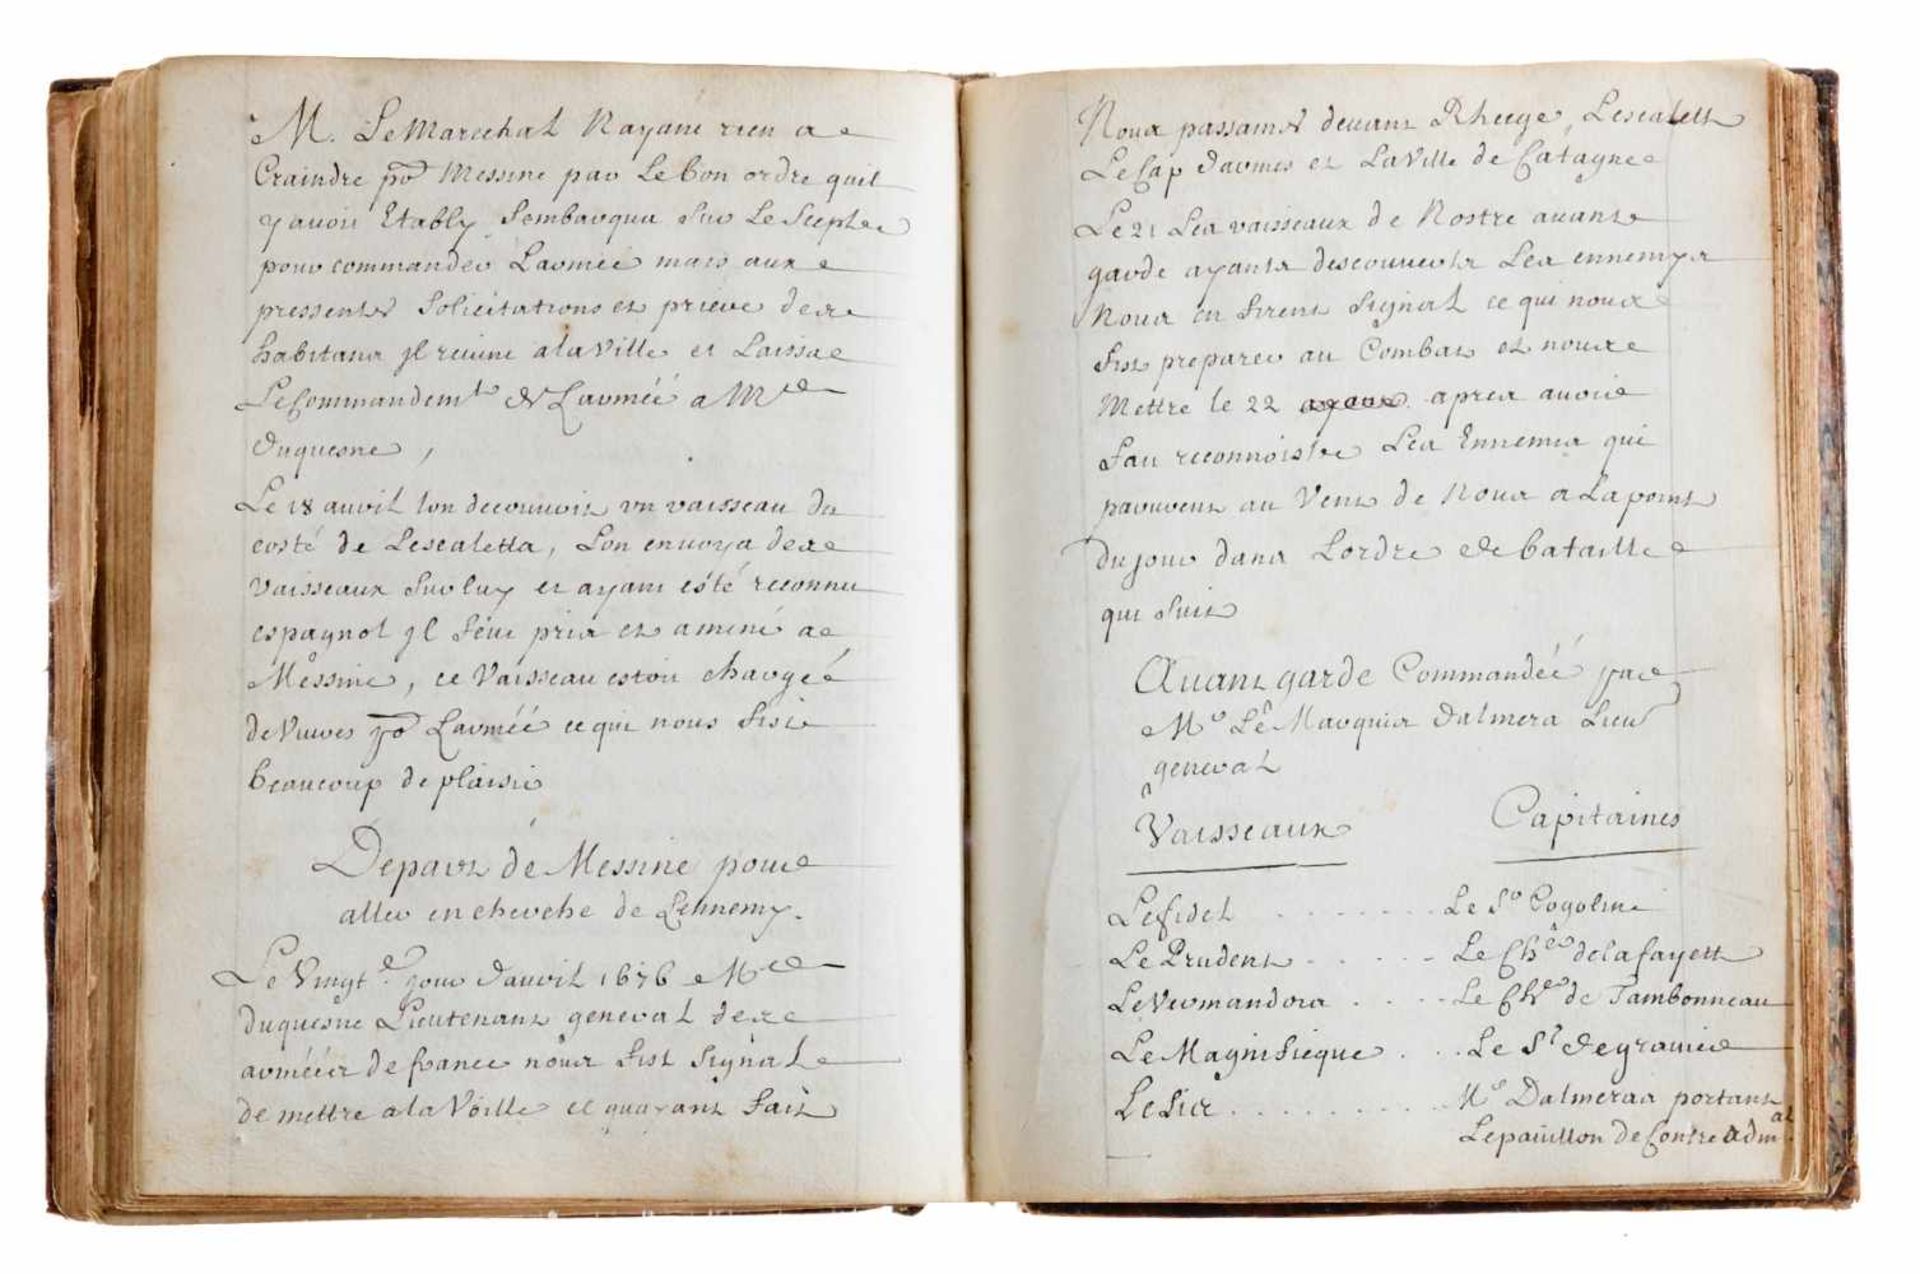 M. Le Marechal Nayant rien a
Craindre po^r Messine par Le bon ordre quil
y auoit Etably Sembarqua Sur Le Scephe
pour commander Larmée mais aux
pressentes Solicitations et priere des
habitans jl reuint a la Ville et Laissa
Le Commandem^t de Larméé a M^r
duquesne,
Le 18 auril lon decouurit vn vaisseau du
costé de Lescaletta, Lon enuoya des
Vaisseaux Sur luy et ayant esté reconnu
espagnol jl feut pris et amené a
Messine, ce Vaisseau estoit chargéé
de Viures po^r Larméé ce qui nous fist
beaucoup de plaisir
Depart de Messine pour
aller en cherche de Lennemy.
Le Vingt^e. jour dauril 1676 M^r
duquesne Lieutenant general des
arméés de france nous fist Signal
de mettre a la Voille ce quayant fait
Nous passames deuant Rhege, Lescalett
Le Cap darmes et La Ville de Catagne
Le 21 Les vaisseaux de Nostre auant
garde ayants descouuerts Les ennemys
Nous en firent Signal ce qui nous
fist preparer au Combat et nous
Mettre le 22 apres auoir
fait reconnoistre Les Ennemis qui
parurent au Vent de Nous a La point
du jour dans Lordre de bataille
qui suit
Auant garde Commandéé par
M^r Le Marquis dalmera Lieu^t
general
Vaisseaux Capitaines
Le fidel . . . . . . . Le S^r Cogolin
Le Prudent . . . . . Le Ch^er de la fayett
Le Vermandois . . . . Le Ch^er de Tambonneau
Le Magnifieque . . . Le S^r de grauier
Le Lis . . . . . . . . . M^r Dalmeras portant
Le pauillon de Contre adm^al.